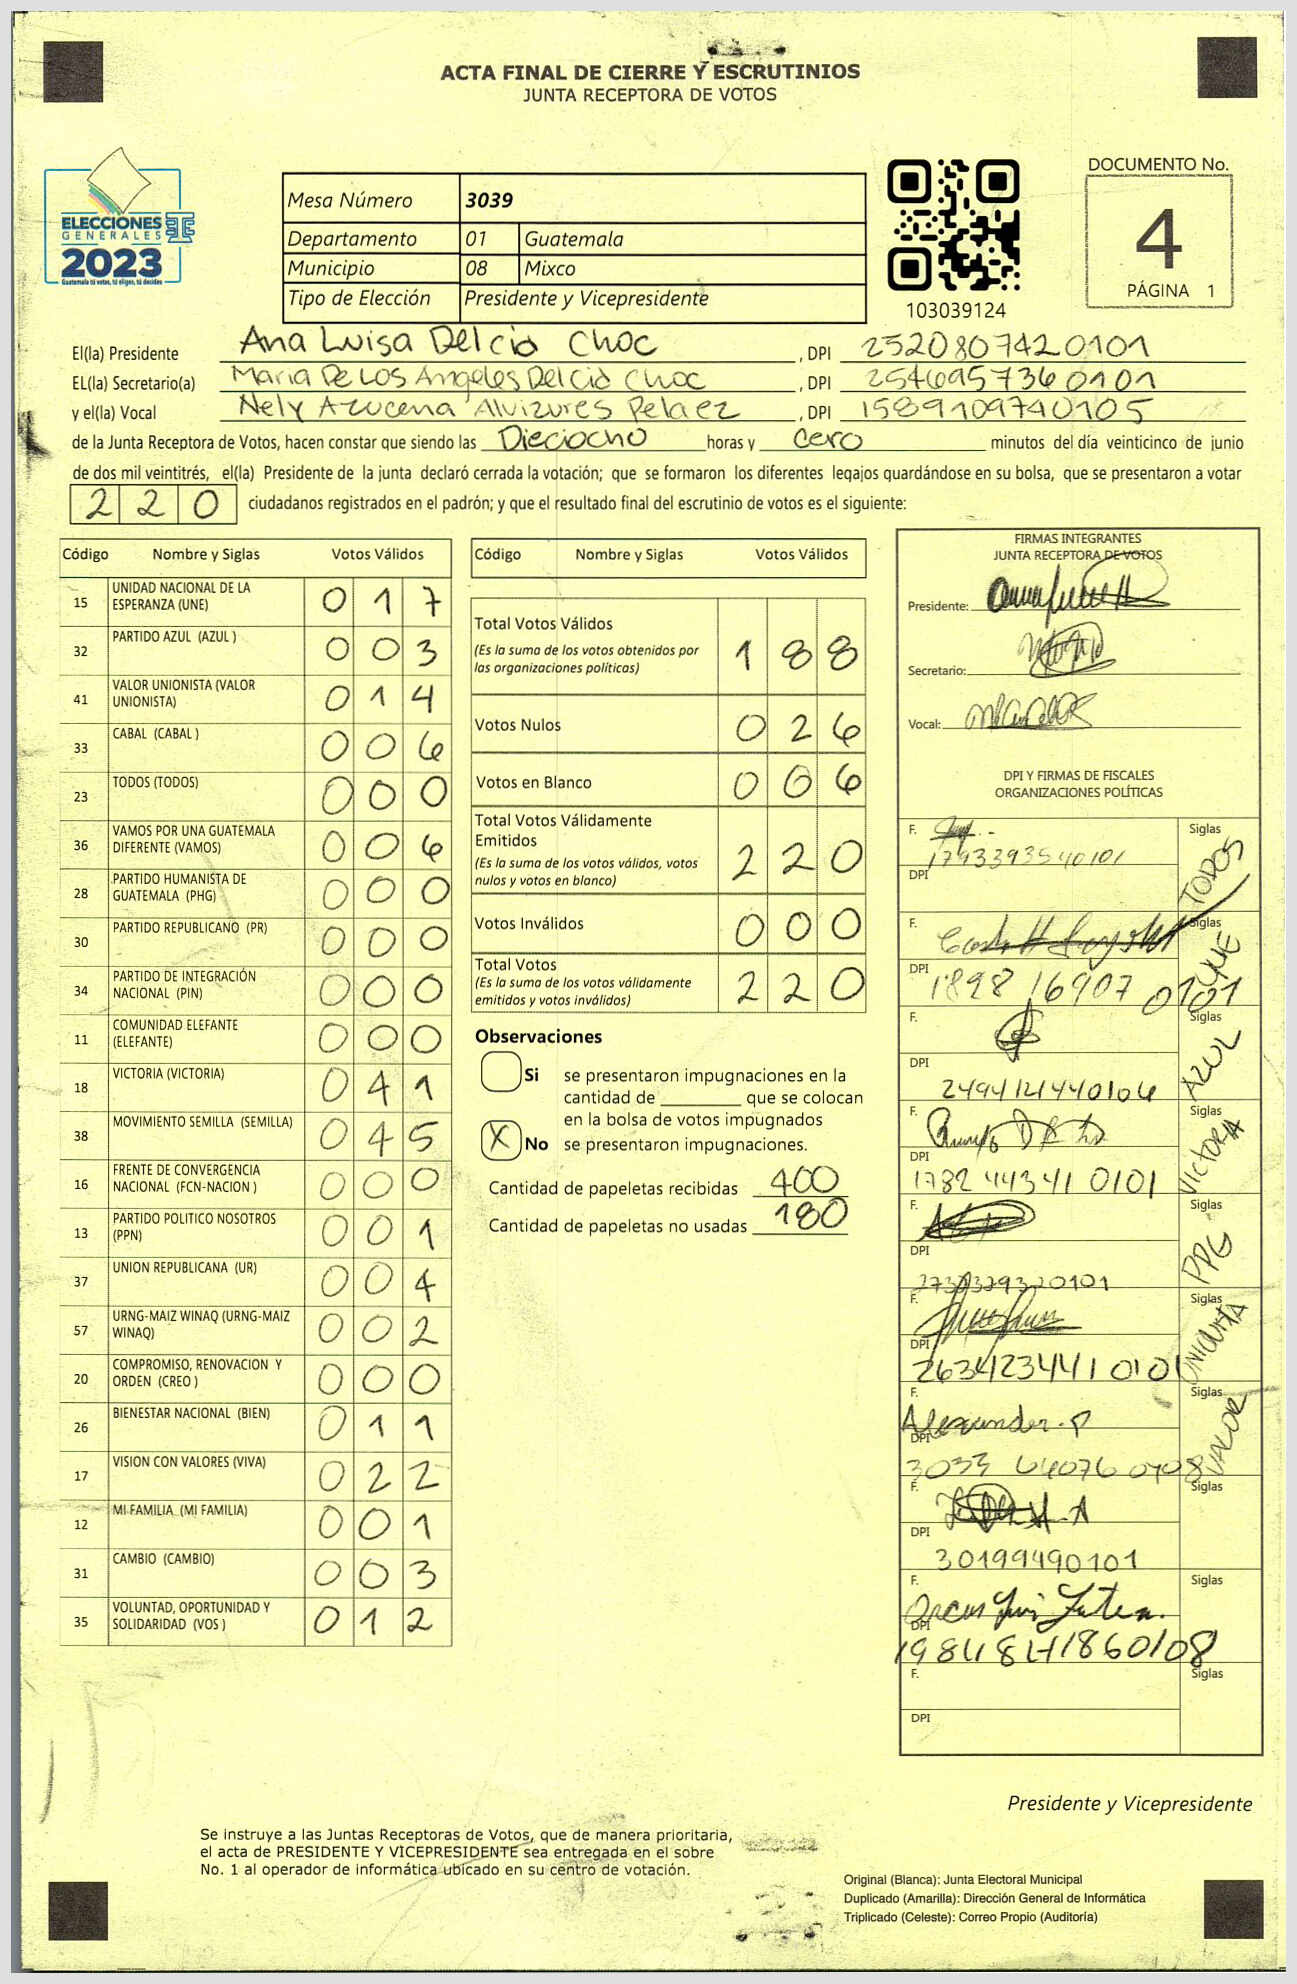 ACTA FINAL DE CIERRE Y ESCRUTINIOS
JUNTA RECEPTORA DE VOTOS
ELECCIONES
GENERALES
2023
Guatemala tú votas, tú eliges, tú decides
Mesa Número 3039
Departamento 01 Guatemala
Municipio 08 Mixco
Tipo de Elección Presidente y Vicepresidente
103039124
DOCUMENTO No.
4
PÁGINA 1
El(la) Presidente Ana Luisa Delcid Choc, DPI 2520807420101
EL(la) Secretario(a) Maria De Los Angeles Delcid Choc, DPI 2546957360101
y el(la) Vocal Nely Azucena Alvizures Pelaez, DPI 1589109740105
de la Junta Receptora de Votos, hacen constar que siendo las Dieciocho horas y cero minutos del día veinticinco de junio
de dos mil veintitrés, el(la) Presidente de la junta declaró cerrada la votación; que se formaron los diferentes legajos quardándose en su bolsa, que se presentaron a votar
220 ciudadanos registrados en el padrón; y que el resultado final del escrutinio de votos es el siguiente:
Código Nombre y Siglas Votos Válidos
15 UNIDAD NACIONAL DE LA ESPERANZA (UNE) 017
32 PARTIDO AZUL (AZUL ) 003
41 VALOR UNIONISTA (VALOR UNIONISTA) 014
33 CABAL (CABAL ) 006
23 TODOS (TODOS) 000
36 VAMOS POR UNA GUATEMALA DIFERENTE (VAMOS) 006
28 PARTIDO HUMANISTA DE GUATEMALA (PHG) 000
30 PARTIDO REPUBLICANO (PR) 000
34 PARTIDO DE INTEGRACIÓN NACIONAL (PIN) 000
11 COMUNIDAD ELEFANTE (ELEFANTE) 000
18 VICTORIA (VICTORIA) 041
38 MOVIMIENTO SEMILLA (SEMILLA) 045
16 FRENTE DE CONVERGENCIA NACIONAL (FCN-NACION ) 000
13 PARTIDO POLITICO NOSOTROS (PPN) 001
37 UNION REPUBLICANA (UR) 004
57 URNG-MAIZ WINAQ (URNG-MAIZ WINAQ) 002
20 COMPROMISO, RENOVACION Y ORDEN (CREO ) 000
26 BIENESTAR NACIONAL (BIEN) 011
17 VISION CON VALORES (VIVA) 022
12 MI FAMILIA (MI FAMILIA) 001
31 CAMBIO (CAMBIO) 003
35 VOLUNTAD, OPORTUNIDAD Y SOLIDARIDAD (VOS ) 012
Código Nombre y Siglas Votos Válidos
Total Votos Válidos 188
(Es la suma de los votos obtenidos por
las organizaciones políticas)
Votos Nulos 026
Votos en Blanco 006
Total Votos Válidamente
Emitidos 220
(Es la suma de los votos válidos, votos
nulos y votos en blanco)
Votos Inválidos 000
Total Votos 220
(Es la suma de los votos válidamente
emitidos y votos inválidos)
Observaciones
Si se presentaron impugnaciones en la
cantidad de ________ que se colocan
en la bolsa de votos impugnados
X No se presentaron impugnaciones.
Cantidad de papeletas recibidas 400
Cantidad de papeletas no usadas 180
FIRMAS INTEGRANTES
JUNTA RECEPTORA DE VOTOS
Presidente:
Secretario:
Vocal:
DPI Y FIRMAS DE FISCALES
ORGANIZACIONES POLÍTICAS
F. Siglas TODOS
DPI 1793393540101
F. Siglas
DPI 1898 16907 0101
F. Siglas AZUL
DPI 2494124440106
F. Siglas VICTORIA
DPI 1782 44341 0101
F. Siglas PPG
DPI
F. Siglas UNIONISTA
DPI 2634234410101
F. Alexander.P Siglas VALOR
DPI
F. Siglas
DPI 30199490101
F. Siglas
DPI
F. Siglas
DPI
Presidente y Vicepresidente
Se instruye a las Juntas Receptoras de Votos, que de manera prioritaria,
el acta de PRESIDENTE Y VICEPRESIDENTE sea entregada en el sobre
No. 1 al operador de informática ubicado en su centro de votación.
Original (Blanca): Junta Electoral Municipal
Duplicado (Amarilla): Dirección General de Informática
Triplicado (Celeste): Correo Propio (Auditoría)